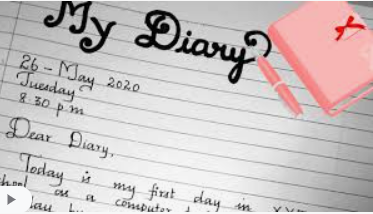 My Diary
26 - May 2020
Tuesday
8:30 p.m
Dear Diary,
Today is my first day in
as a computer